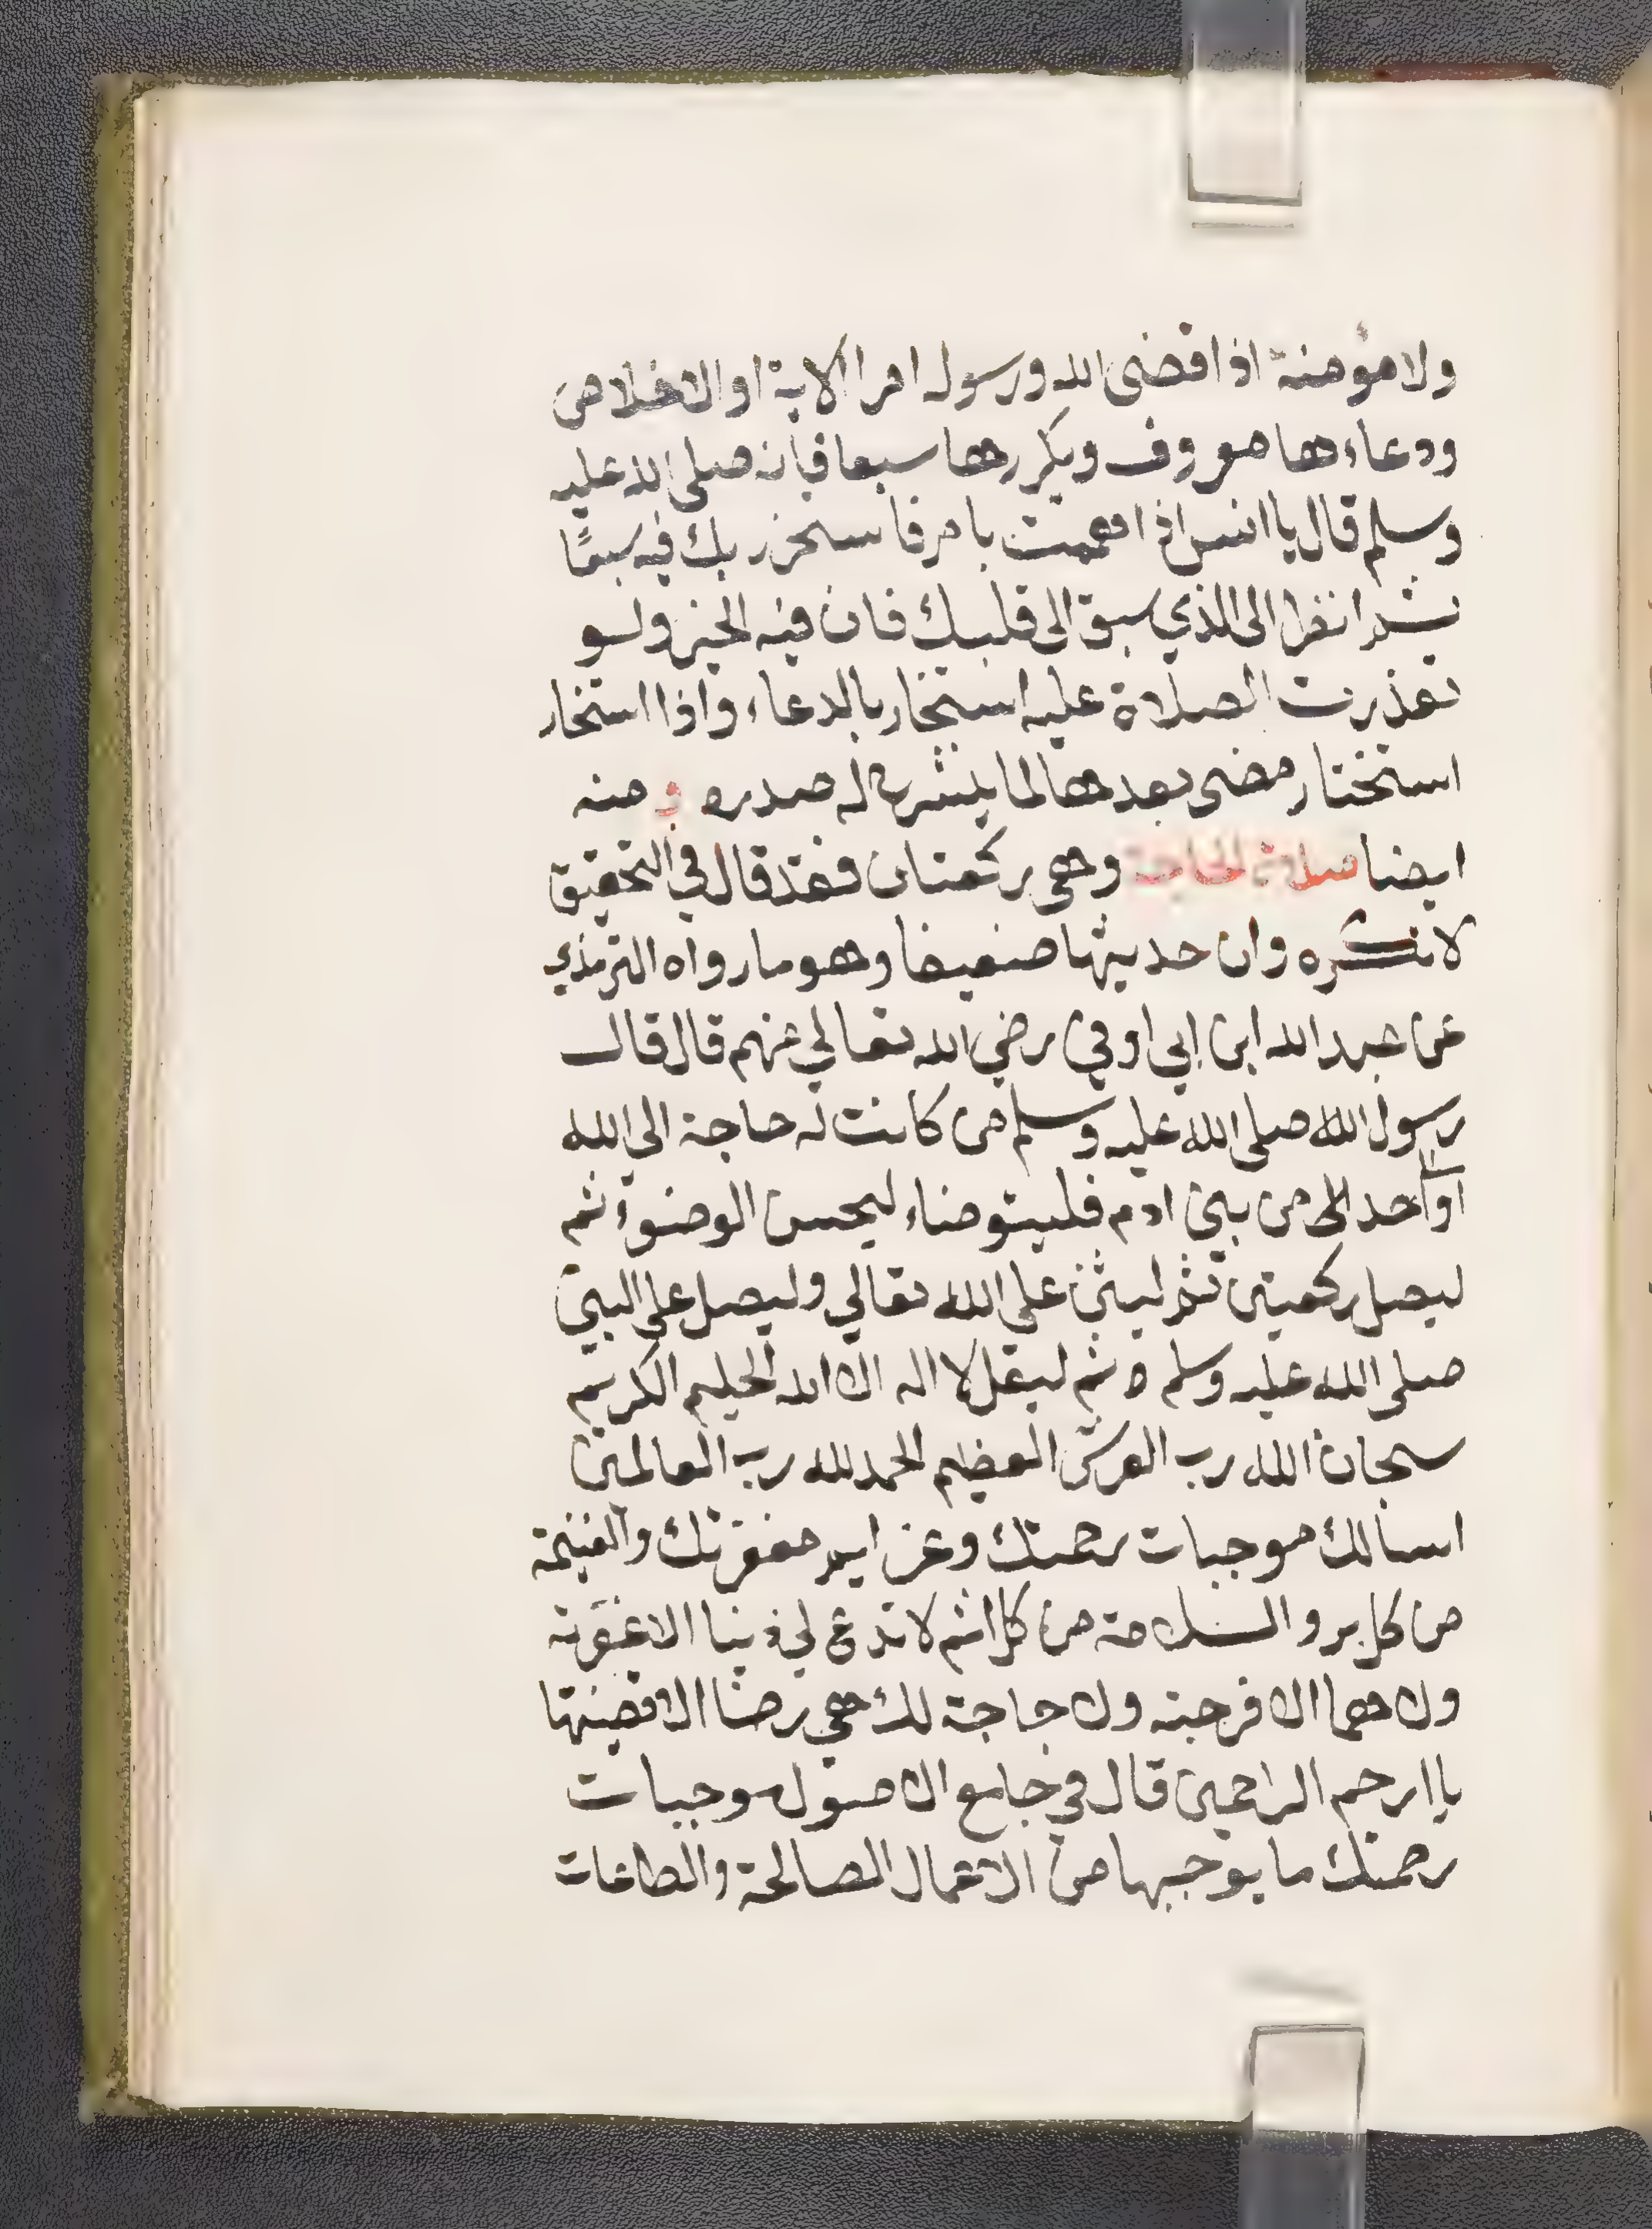 ولا مؤمنة اذا قضى الله ورسوله امرا الاية او الاخلاص
ودعاءها معروف ويكررها سبعا فانه صلى الله عليه
وسلم قال يا انس اذ اهممت بامر فاستخر ربك فيه سبعًا
ثم انظر الى الذي سبق الى قلبك فان فيه الخير ولو
تعذرت الصلاة عليه استخار بالدعاء واذا استخار
استختار مضى بعدها لما ينشرح له صدره و منه
ايضا صلاة الحاجة وهي ركعتان فقد قال في التحقيق
لا تكره وان حديثها ضعيفا وهو ما رواه الترمذي
عن عبد الله ابن ابي اوفي رضي الله تعالي عنهم قال قال
رسول الله صلى الله عليه وسلم من كانت له حاجة الى الله
او احد الى من بني ادم فليتوضاء ليحسن الوضوء ثم
ليصل ركعتين ثم ليثن علي الله تعالي وليصل علي النبي
صلى الله عليه وسلم ه ثم ليقل لا اله الا الله الحليم الكريم
سبحان الله رب العرش العضيم الحمد لله رب العالمين
اسالك موجبات رحمتك وعزايم مغفرتك والغنيمة
من كل بر والسلامة من كل اثم لا تدع لي ذنبا الا غفرته
ولا هما الا فرجته ولا حاجة لك هي رضا الا قضيتها
يا ارحم الراحمين قال في جامع الاصول موجبات
رحمتك ما يوجبها من الاعمال الصالحة والطاعات